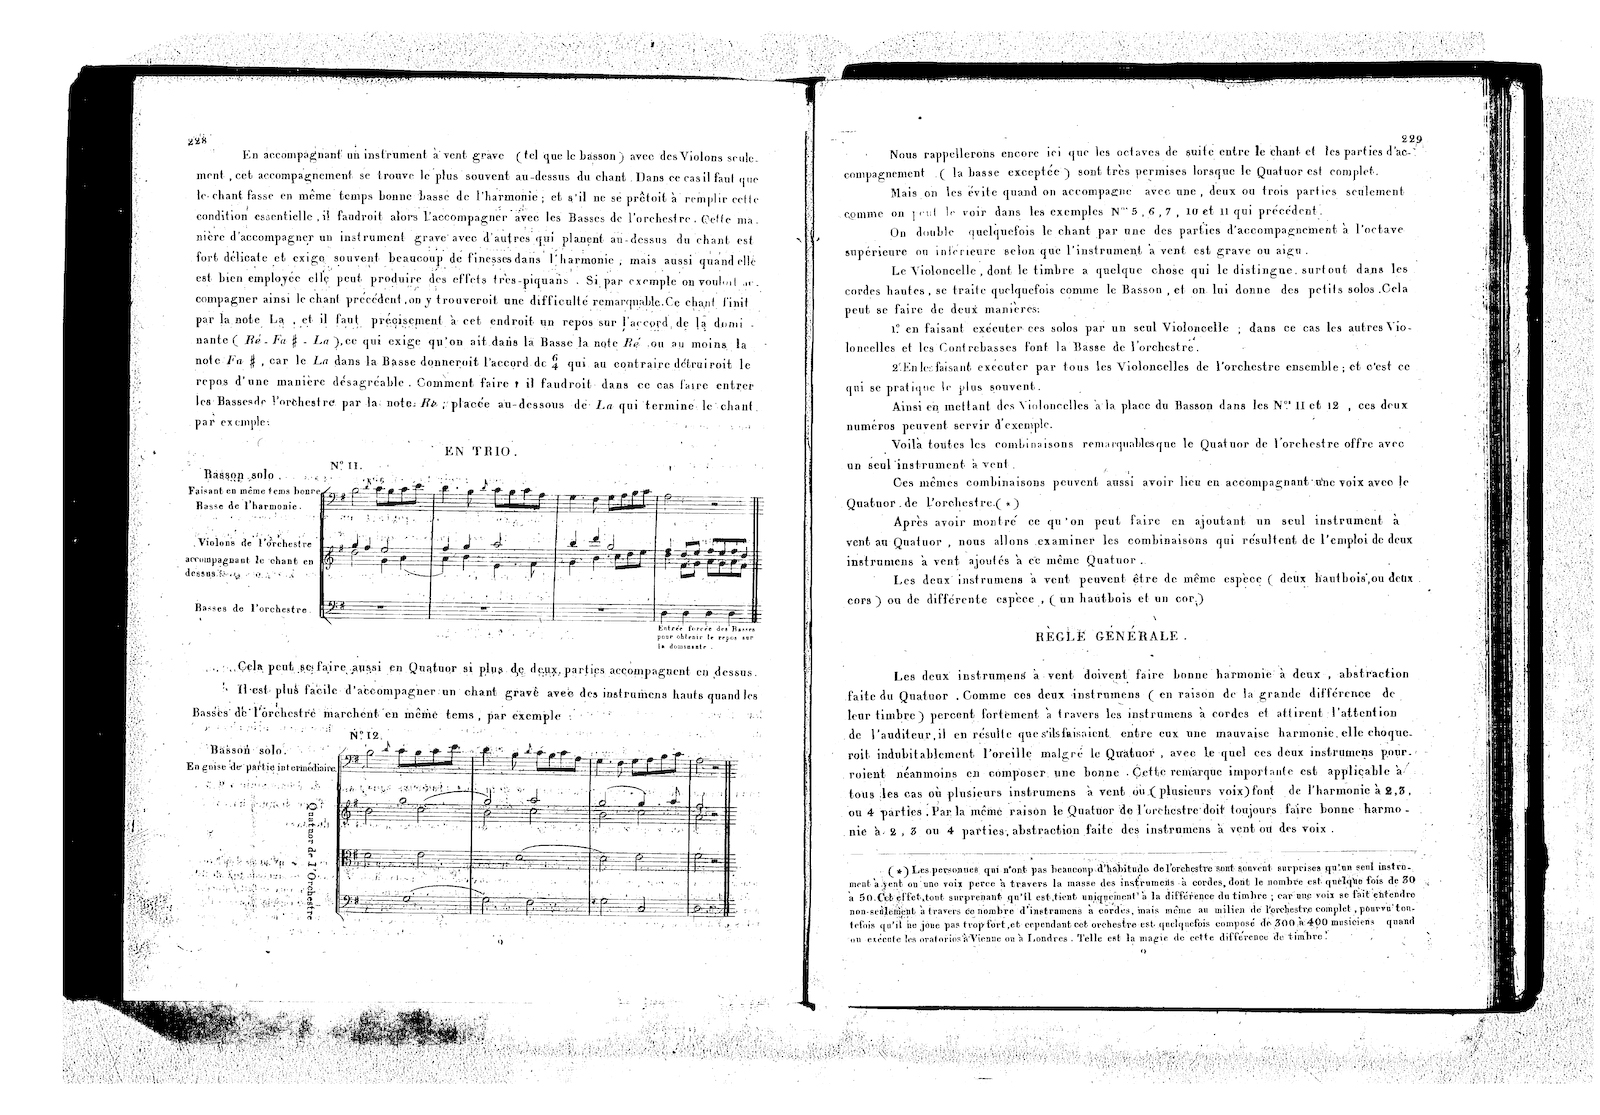 228
En accompagnant un instrument à vent grave (tel que le basson) avec des Violons seule-
ment, cet accompagnement se trouve le plus souvent au-dessus du chant. Dans ce cas il faut que
le chant fasse en même temps bonne basse de l'harmonie; et s'il ne se prêtoit à remplir cette
condition essentielle, il faudroit alors l'accompagner avec les Basses de l'orchestre. Cette ma-
nière d'accompagner un instrument grave avec d'autres qui planent au-dessus du chant est
fort délicate et exige souvent beaucoup de finesses dans l'harmonie; mais aussi quand elle
est bien employée elle peut produire des effets très-piquans. Si par exemple on vouloit ac-
compagner ainsi le chant précédent, on y trouveroit une difficulté remarquable. Ce chant finit
par la note La, et il faut précisement à cet endroit un repos sur l'accord de la domi-
nante (Ré-Fa♯-La), ce qui exige qu'on ait dans la Basse la note Ré ou au moins la
note Fa♯, car le La dans la Basse donneroit l'accord de 6/4 qui au contraire détruiroit le
repos d'une manière désagréable. Comment faire? il faudroit dans ce cas faire entrer
les Basses de l'orchestre par la note Re; placée au-dessous de La qui termine le chant.
par exemple:
EN TRIO.
N.o 11.
Basson solo.
Faisant en même tems bonne
Basse de l'harmonie.
Violons de l'orchestre
accompagnant le chant en
dessus.
Basses de l'orchestre.
Entrée forcée des Basses
pour obtenir le repos sur
la dominante.
Cela peut se faire aussi en Quatuor si plus de deux parties accompagnent en dessus.
Il est plus facile d'accompagner un chant grave avec des instrumens hauts quand les
Basses de l'orchestre marchent en même tems, par exemple:
N.o 12.
Basson solo.
En guise de partie intermédiaire.
Quatuor de l'Orchestre
229
Nous rappellerons encore ici que les octaves de suite entre le chant et les parties d'ac-
compagnement (la basse exceptée) sont très permises lorsque le Quatuor est complet.
Mais on les évite quand on accompagne avec une, deux ou trois parties seulement
comme on peut le voir dans les exemples N.os 5, 6, 7, 10 et 11 qui précédent.
On double quelquefois le chant par une des parties d'accompagnement à l'octave
supérieure ou inférieure selon que l'instrument à vent est grave ou aigu.
Le Violoncelle, dont le timbre a quelque chose qui le distingue, surtout dans les
cordes hautes, se traite quelquefois comme le Basson, et on lui donne des petits solos. Cela
peut se faire de deux manières:
1.o en faisant exécuter ces solos par un seul Violoncelle; dans ce cas les autres Vio-
loncelles et les Contrebasses font la Basse de l'orchestre.
2.o En les faisant exécuter par tous les Violoncelles de l'orchestre ensemble; et c'est ce
qui se pratique le plus souvent.
Ainsi en mettant des Violoncelles à la place du Basson dans les N.os 11 et 12, ces deux
numéros peuvent servir d'exemple.
Voilà toutes les combinaisons remarquables que le Quatuor de l'orchestre offre avec
un seul instrument à vent.
Ces mêmes combinaisons peuvent aussi avoir lieu en accompagnant une voix avec le
Quatuor de l'orchestre.(*)
Après avoir montré ce qu'on peut faire en ajoutant un seul instrument à
vent au Quatuor, nous allons examiner les combinaisons qui résultent de l'emploi de deux
instrumens à vent ajoutés à ce même Quatuor.
Les deux instrumens à vent peuvent être de même espèce (deux hautbois, ou deux
cors) ou de différente espèce, (un hautbois et un cor.)
RÈGLE GÉNÉRALE.
Les deux instrumens à vent doivent faire bonne harmonie à deux, abstraction
faite du Quatuor. Comme ces deux instrumens (en raison de la grande différence de
leur timbre) percent fortement à travers les instrumens à cordes et attirent l'attention
de l'auditeur, il en résulte que s'ils faisaient entre eux une mauvaise harmonie, elle choque-
roit indubitablement l'oreille malgré le Quatuor, avec le quel ces deux instrumens pour-
roient néanmoins en composer une bonne. Cette remarque importante est applicable à
tous les cas où plusieurs instrumens à vent ou (plusieurs voix) font de l'harmonie à 2, 3,
ou 4 parties. Par la même raison le Quatuor de l'orchestre doit toujours faire bonne harmo-
nie à 2, 3 ou 4 parties, abstraction faite des instrumens à vent ou des voix.
(*) Les personnes qui n'ont pas beaucoup d'habitude de l'orchestre sont souvent surprises qu'un seul instru-
ment à vent ou une voix perce à travers la masse des instrumens à cordes, dont le nombre est quelque fois de 30
à 50. Cet effet, tout surprenant qu'il est, tient uniquement à la différence du timbre; car une voix se fait entendre
non-seulement à travers ce nombre d'instrumens à cordes, mais même au milieu de l'orchestre complet, pourvu tou-
tefois qu'il ne joue pas trop fort, et cependant cet orchestre est quelquefois composé de 300 à 400 musiciens quand
on exécute les oratorios à Vienne ou à Londres. Telle est la magie de cette différence de timbre!